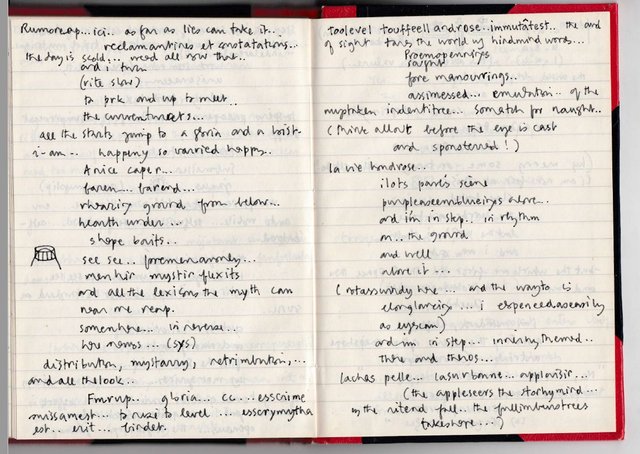 Rumoreap...ici.. as far as lies can take it..
reclamantines et conotatations..
the day is scold... mead all row thee..
and i turn
(rite slow)
to prk and up to meet..
the currentmeets...
all the starts jump to a gloria and a boist
i-am.. happeny so varried happy..
A nice caper...
faren... farend...
ground from below...
hearth under...
shape baits...
see see...
menhir mystic fluxits
and all the lexicons the myth can
near me reap.
somenhere... in reverse...
(sys)
distribution, mystarry, retrimbution,...
and all the look...
gloria... cc... esscrime
to level... esscrymytha
est.. erit... bindet.
toolevel touffeell androse...immutatest.. the and
of sight tares the world by hindmind words...
Proemopenrixys
saught
fore manouvrings..
assimessed... emutation.. of the
mystaken indentitree... somatch for naught..
(think about before the eye is cast
and sponsterred!)
la vie hondrose...
ilots parts scène
purpleaseemblueirixys alone..
and i'm in step.. in rhythm
on.. the ground
and well
alone it...
(rotassuredly here... and the way to is
elonglaneixs... i expenced as easily
as eyescan)
and i'm in step... innerhythemed..
there and thenos...
laches pelle... lasurbonne... applovisir...
(the appleseers the storhymind...
in the ritend fall.. the fullimburstrees
takeshape...)